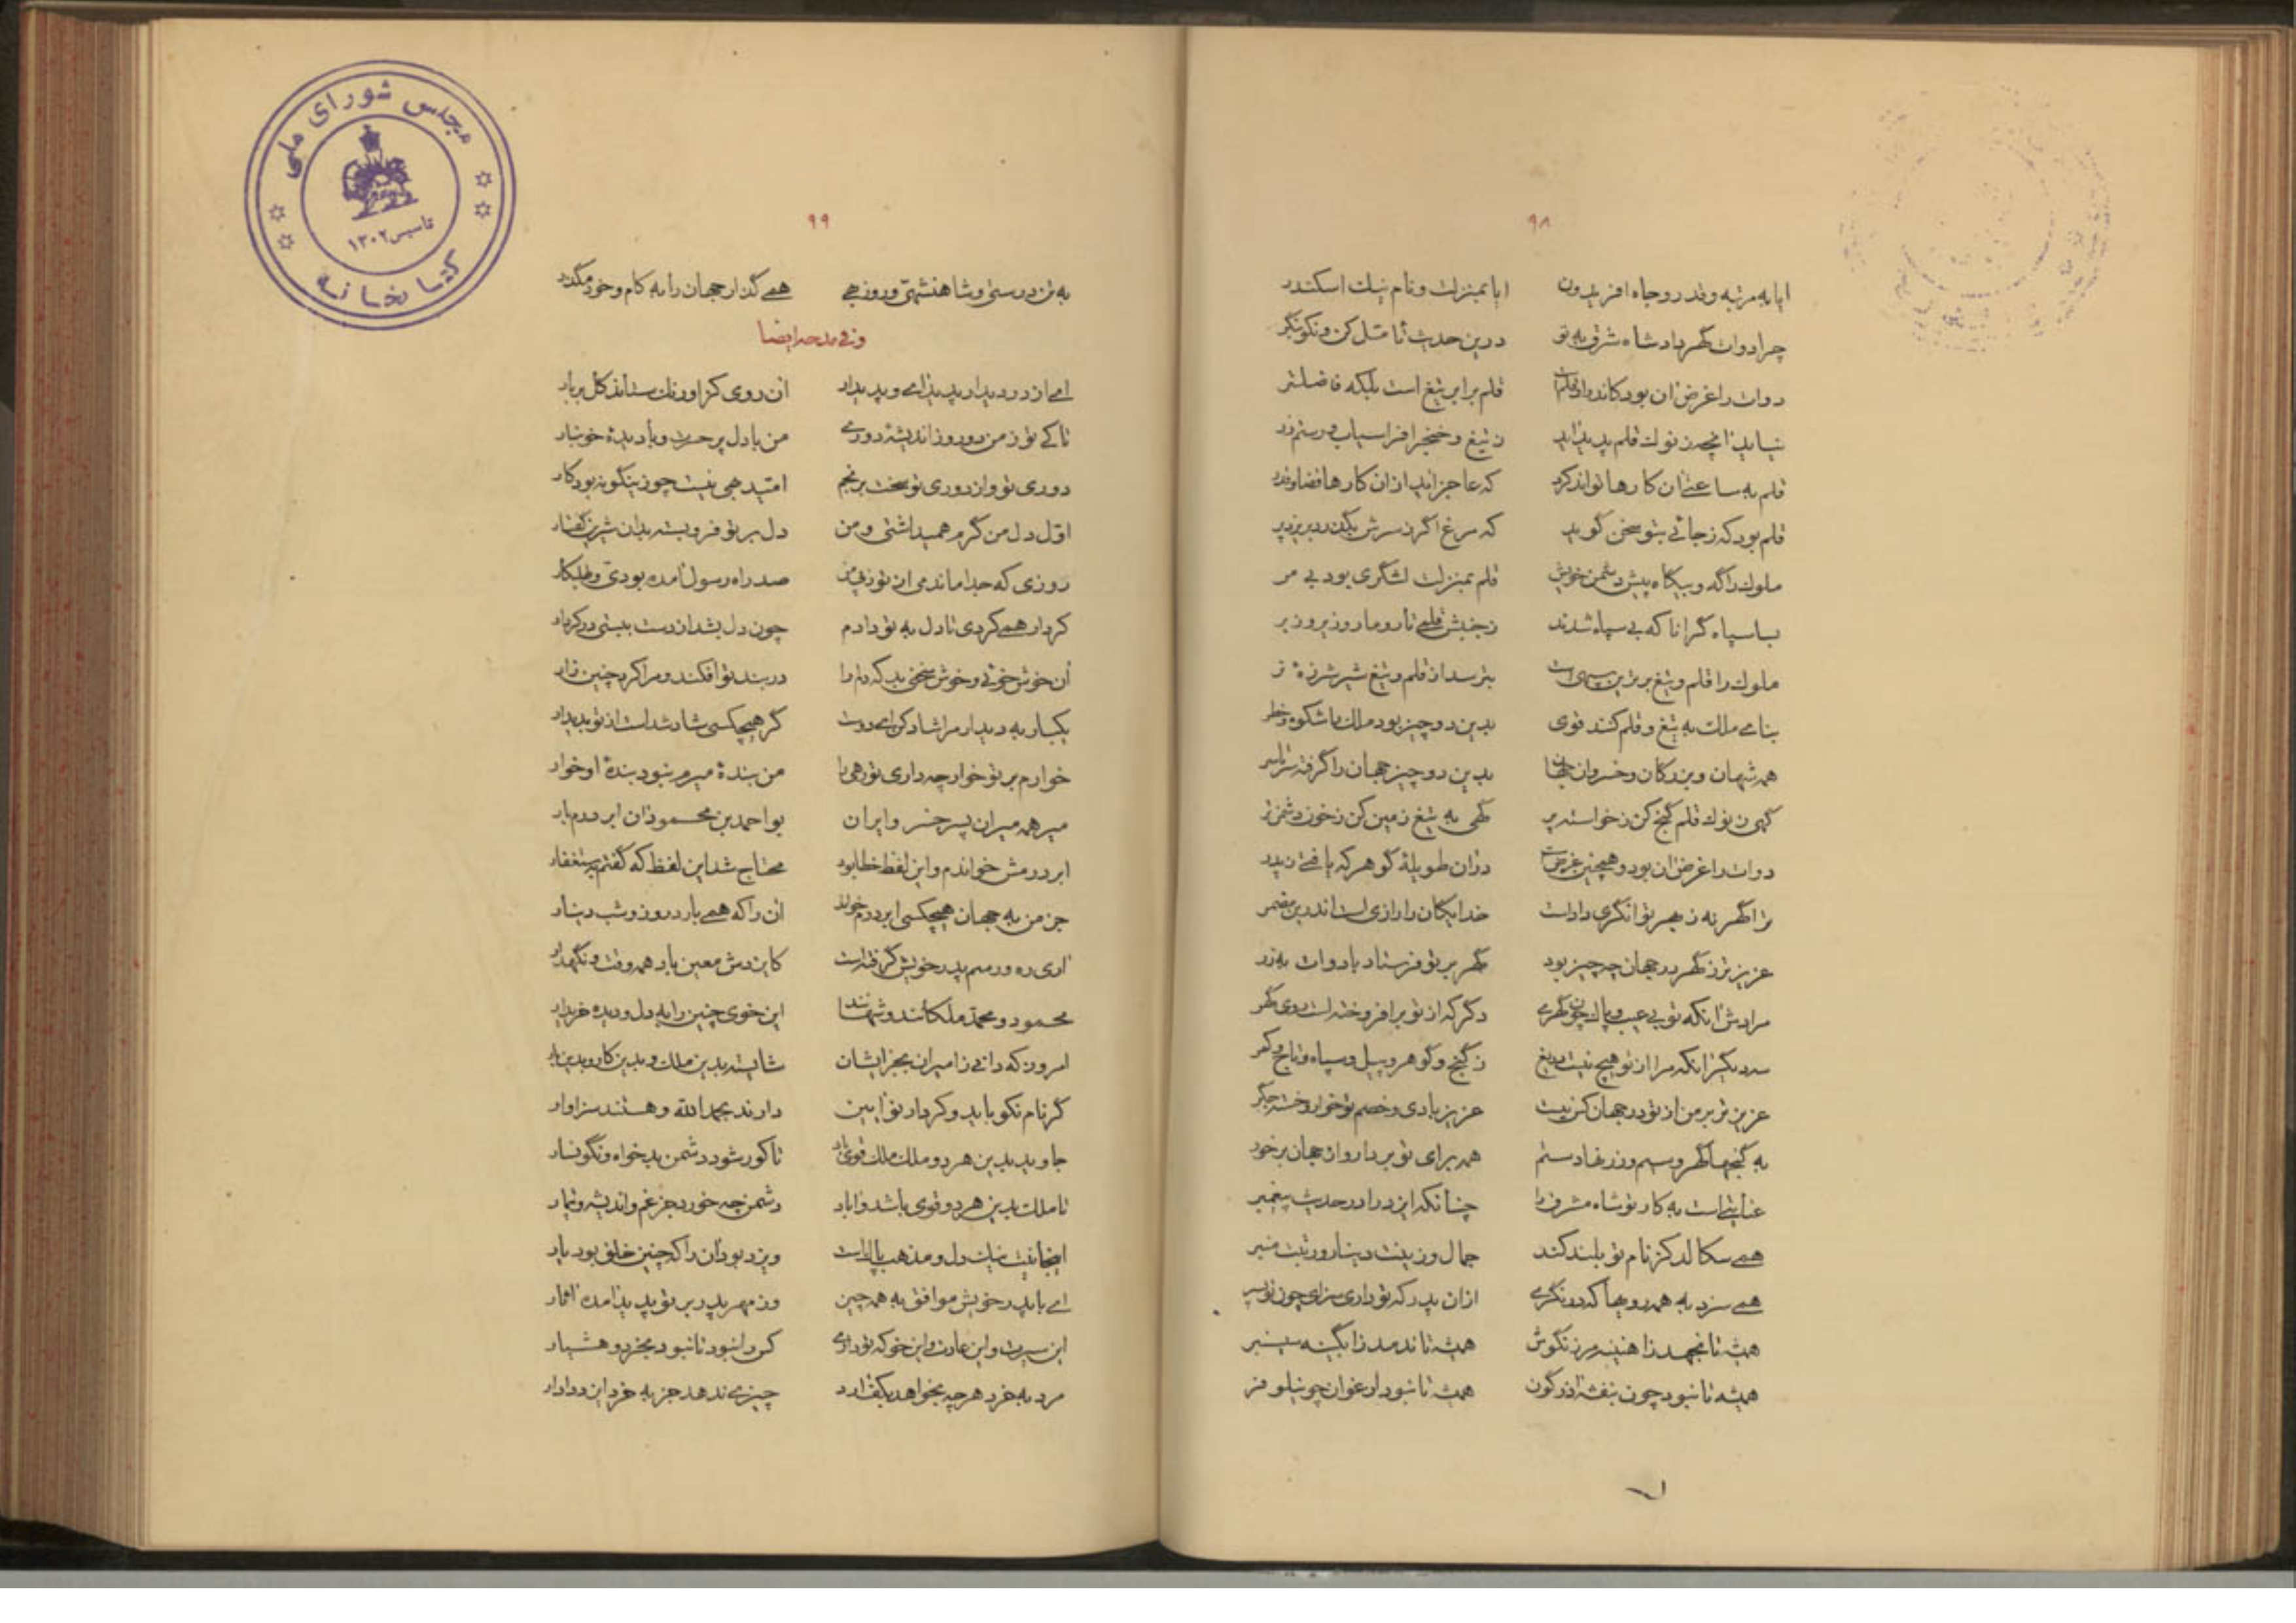 ۹۸
ایا به مرتبه و قدر و جاه افریدون ایا بمنزلت و نام نیک اسکندر
چرا دوات گهر داد شاه شرق به تو درین حدیث تامل کن و نکو بنگر
دوات را غرض آن بود کاندرو قلم است قلم برابر تیغ است بلکه فاضلتر
نیاید آنچه ز نوک قلم پدید آید ز تیغ و خنجر افراسیاب و رستم زر
قلم به ساعتی آن کارها تواند کرد که عاجز آید از آن کارها قضا و قدر
قلم بود که ز جائی بتو سخن گوید که مرغ اگر ز سرش بگذرد بریزد پر
ملوک را گه و بیگاه پیش دشمن خویش قلم بمنزلت لشگری بود بی مر
بسا سپاه گرانا که بی سپاه شدند ز جنبش قلمی تار و مار و زیر و زبر
ملوک را قلم و تیغ برترین سپهی است بترسد از قلم و تیغ شیر شرزهٔ نر
بنای ملک به تیغ و قلم کنند قوی بدین دو چیز بود ملک با شکوه و خطر
همه شهان و بزرگان و خسروان جهان بدین دو چیز جهان را گرفته سرتاسر
گهی ز نوک قلم گنج کن ز خواسته پر گهی به تیغ زمین کن ز خون دشمن تر
دوات را غرض آن بود و همچنین غرض است در آن طویلهٔ گوهر که یافتی ز پدر
ترا گهر نه ز بهر توانگری داد است خدایگان را رازی است اندرین مضمر
عزیزتر ز گهر در جهان چه چیز بود گهر بر تو فرستاد با دوات به زر
مرادش آنکه تو بی عیب و پاک چون گهری دگر که از تو برافروخته است روی گهر
سه دیگر آنکه مرا از تو هیچ نیست دریغ ز گنج و گوهر و پیل و سپاه و تاج و کمر
عزیزتر بر من از تو در جهان کس نیست عزیز بادی و خصم تو خوار و خسته جگر
به گنجها گهر و سیم و زر نهادستم همه برای تو بردار و از جهان برخور
عنایتی است به کار تو شاه مشرق را چنانکه ایزد را در حدیث پیغمبر
همی سگالد کز نام تو بلند کند جمال و زینت دینار و رتبت منبر
همی سزد به همه رویها که در نگری از آن پدر که تو داری سزای چون تو پسر
همیشه تا نجهد ز آهنینه مرزنگوش همیشه تا ندمد ز آبگینه سیسنبر
همیشه تا نبود چون بنفشه آذرگون همیشه تا نبود ارغوان چو نیلوفر
۹۹
به تن درستی و شاهنشهی و روزبهی همی گذار جهان را به کام و خود مگذر
و فی مدحه ایضا
ای از در دیدار پدید آی و پدید آر آن روی کز او رنگ ستاند گل بربار
تا کی تو ز من دور و ز اندیشهٔ دوری من با دل پر حسرت و با دیدهٔ خونبار
دوری تو و از دوری تو سخت برنجم امید بهی نیست چو زینگونه بود کار
اول دل من گرم همیداشتی و من دل بر تو فرو بسته بدان شیرین گفتار
روزی که جدا ماندمی از تو ز پی من صد راه رسول آمده بودی و طلبکار
کردار همی کردی تا دل به تو دادم چون دل بشد از دست ببستی در کردار
آن خوش خوئی و خوش سخنی بد که دلم را در بند تو افکند و مرا کرد چنین زار
یکبار به دیدار مرا شاد کن ای دوست گر هیچکسی شاد شد است از تو بدیدار
خوارم بر تو خوار چه داری تو رهی را من بندهٔ میرم نبود بندهٔ او خوار
میر همه میران پسر خسرو ایران بو احمد بن محمود آن ابر درم بار
ابر درمش خواندم و این لفظ خطا بود محتاج شد این لفظ که گفتم به ستغفار
جز من به جهان هیچکسی ابر درم خواند آن را که همی بارد روز و شب دینار
آری ره و رسم پدر خویش گرفته است کایزدش معین باد همه وقت و نگهدار
محمود و محمد ملکانند و شهانند این خوی چنین را به دل و دیده خریدار
امروز که دانی ز امیران بجز ایشان شایسته بدین ملک و بدین کار و بدین بار
گر نام نکو باید و کردار نو آیین دارند بحمد الله و هستند سزاوار
جاوید بدین هر دو ملک ملک قوی باد تا کور شود دشمن بدخواه و نگونسار
تا ملک بدین هر دو قوی باشد و آباد دشمن چه خورد جز غم و اندیشه و تیمار
اینجا نیت نیک دل و مذهب پاک است ویزد بود آن را که چنین خلق بود یار
ای با پدر خویش موافق به همه چیز وز مهر پدر بر تو پدید آمده آثار
این سیرت و این عادت و این خو که تو داری کس را نبود تا نبود بخرد و هشیار
مرد به خرد هر چه بخواهد بکف آرد چیزی ندهد جز به خرد ایزد دادار
مجلس شورای ملی
تاسیس ۱۳۰۲
کتابخانه